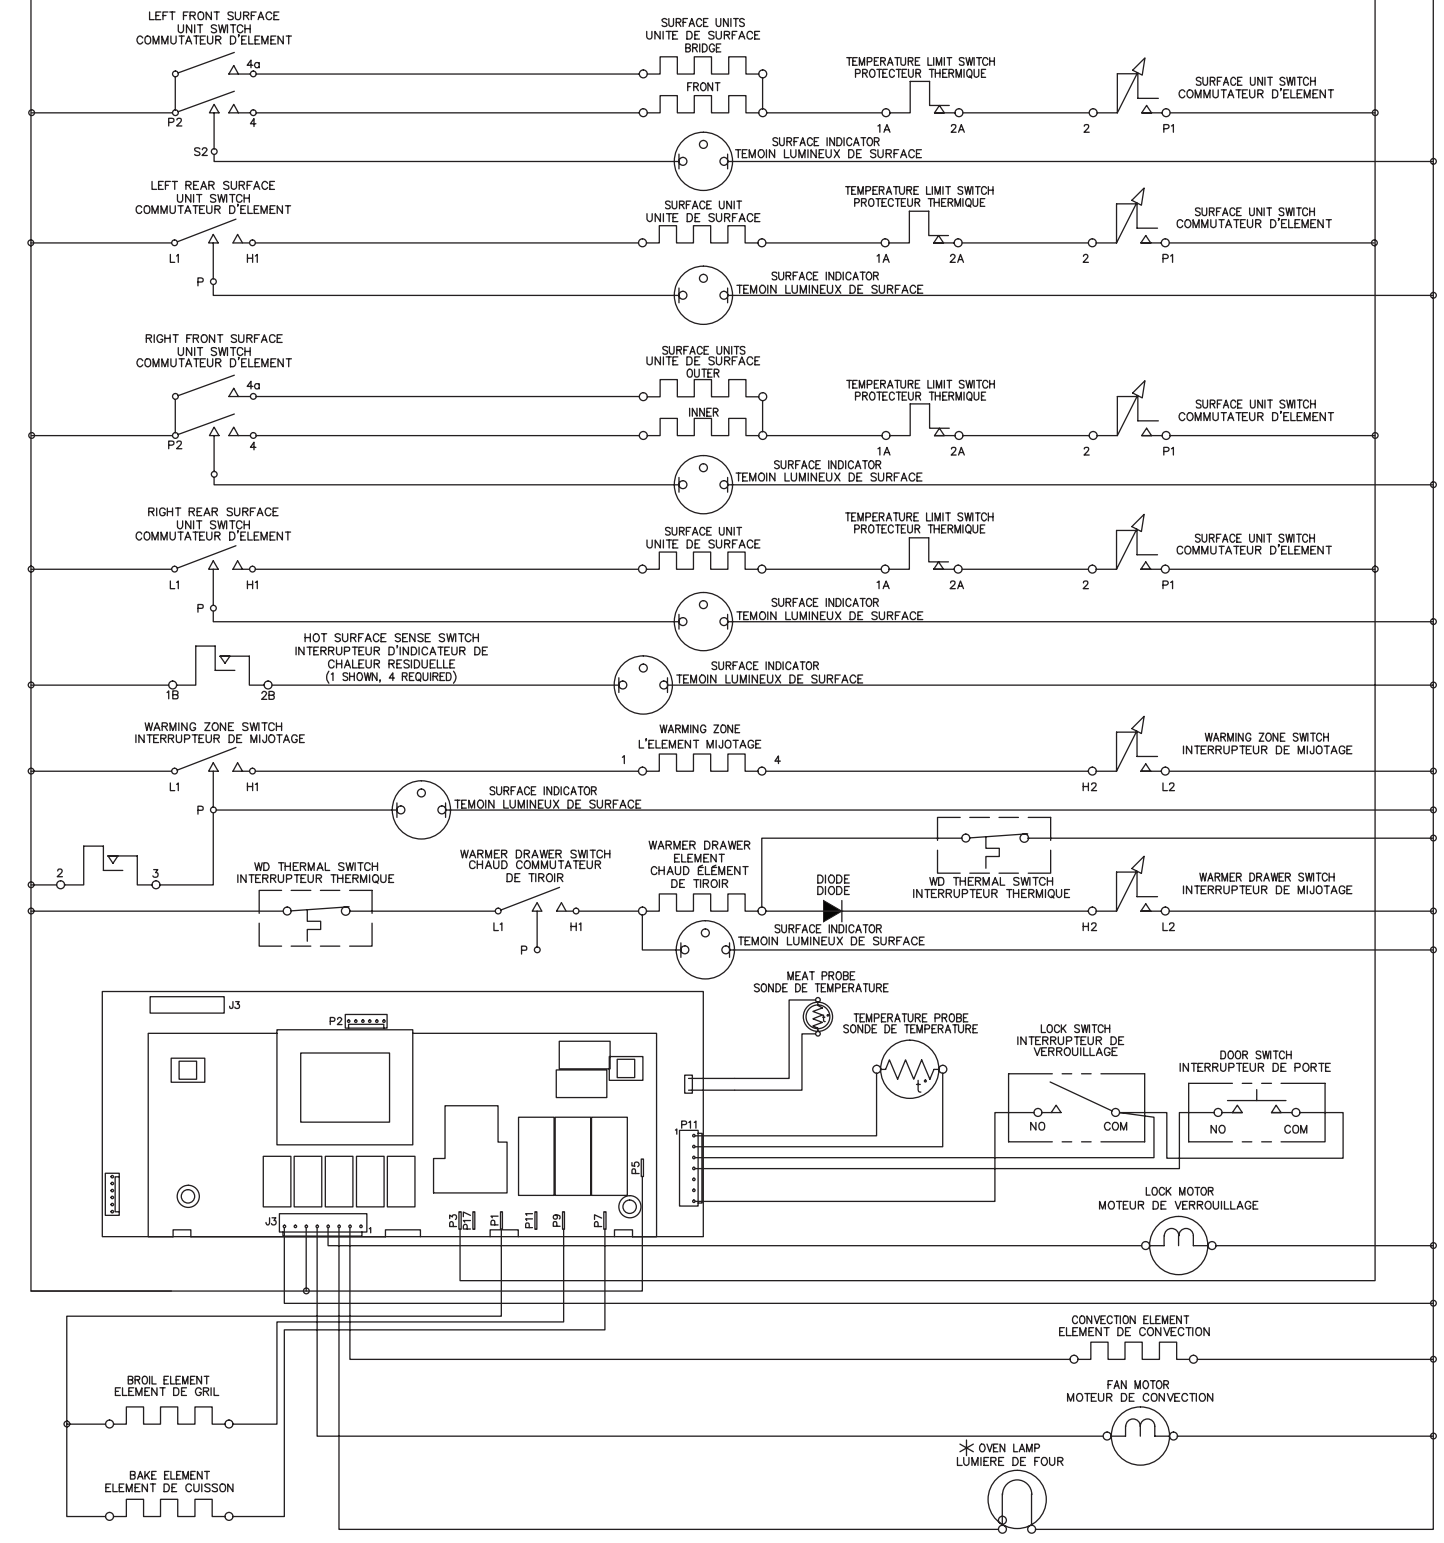 LEFT FRONT SURFACE
UNIT SWITCH
COMMUTATEUR D'ELEMENT
4a
P2
4
S2
SURFACE UNITS
UNITE DE SURFACE
BRIDGE
FRONT
TEMPERATURE LIMIT SWITCH
PROTECTEUR THERMIQUE
1A
2A
2
P1
SURFACE UNIT SWITCH
COMMUTATEUR D'ELEMENT
SURFACE INDICATOR
TEMOIN LUMINEUX DE SURFACE
LEFT REAR SURFACE
UNIT SWITCH
COMMUTATEUR D'ELEMENT
L1
H1
P
SURFACE UNIT
UNITE DE SURFACE
TEMPERATURE LIMIT SWITCH
PROTECTEUR THERMIQUE
1A
2A
2
P1
SURFACE UNIT SWITCH
COMMUTATEUR D'ELEMENT
SURFACE INDICATOR
TEMOIN LUMINEUX DE SURFACE
RIGHT FRONT SURFACE
UNIT SWITCH
COMMUTATEUR D'ELEMENT
4a
P2
4
SURFACE UNITS
UNITE DE SURFACE
OUTER
INNER
TEMPERATURE LIMIT SWITCH
PROTECTEUR THERMIQUE
1A
2A
2
P1
SURFACE UNIT SWITCH
COMMUTATEUR D'ELEMENT
SURFACE INDICATOR
TEMOIN LUMINEUX DE SURFACE
RIGHT REAR SURFACE
UNIT SWITCH
COMMUTATEUR D'ELEMENT
L1
H1
P
SURFACE UNIT
UNITE DE SURFACE
TEMPERATURE LIMIT SWITCH
PROTECTEUR THERMIQUE
1A
2A
2
P1
SURFACE UNIT SWITCH
COMMUTATEUR D'ELEMENT
SURFACE INDICATOR
TEMOIN LUMINEUX DE SURFACE
HOT SURFACE SENSE SWITCH
INTERRUPTEUR D'INDICATEUR DE
CHALEUR RESIDUELLE
(1 SHOWN, 4 REQUIRED)
1B
2B
SURFACE INDICATOR
TEMOIN LUMINEUX DE SURFACE
WARMING ZONE SWITCH
INTERRUPTEUR DE MIJOTAGE
L1
H1
P
WARMING ZONE
L'ELEMENT MIJOTAGE
1
4
WARMING ZONE SWITCH
INTERRUPTEUR DE MIJOTAGE
H2
L2
SURFACE INDICATOR
TEMOIN LUMINEUX DE SURFACE
2
3
WD THERMAL SWITCH
INTERRUPTEUR THERMIQUE
WARMER DRAWER SWITCH
CHAUD COMMUTATEUR
DE TIROIR
L1
H1
P
WARMER DRAWER
ELEMENT
CHAUD ÉLÉMENT
DE TIROIR
DIODE
DIODE
WD THERMAL SWITCH
INTERRUPTEUR THERMIQUE
WARMER DRAWER SWITCH
INTERRUPTEUR DE MIJOTAGE
H2
L2
SURFACE INDICATOR
TEMOIN LUMINEUX DE SURFACE
MEAT PROBE
SONDE DE TEMPERATURE
t°
TEMPERATURE PROBE
SONDE DE TEMPERATURE
t°
LOCK SWITCH
INTERRUPTEUR DE
VERROUILLAGE
NO
COM
DOOR SWITCH
INTERRUPTEUR DE PORTE
NO
COM
J3
P2
P11
1
P5
J3
1
P3
P17
P1
P11
P9
P7
LOCK MOTOR
MOTEUR DE VERROUILLAGE
CONVECTION ELEMENT
ELEMENT DE CONVECTION
BROIL ELEMENT
ELEMENT DE GRIL
FAN MOTOR
MOTEUR DE CONVECTION
BAKE ELEMENT
ELEMENT DE CUISSON
* OVEN LAMP
LUMIERE DE FOUR